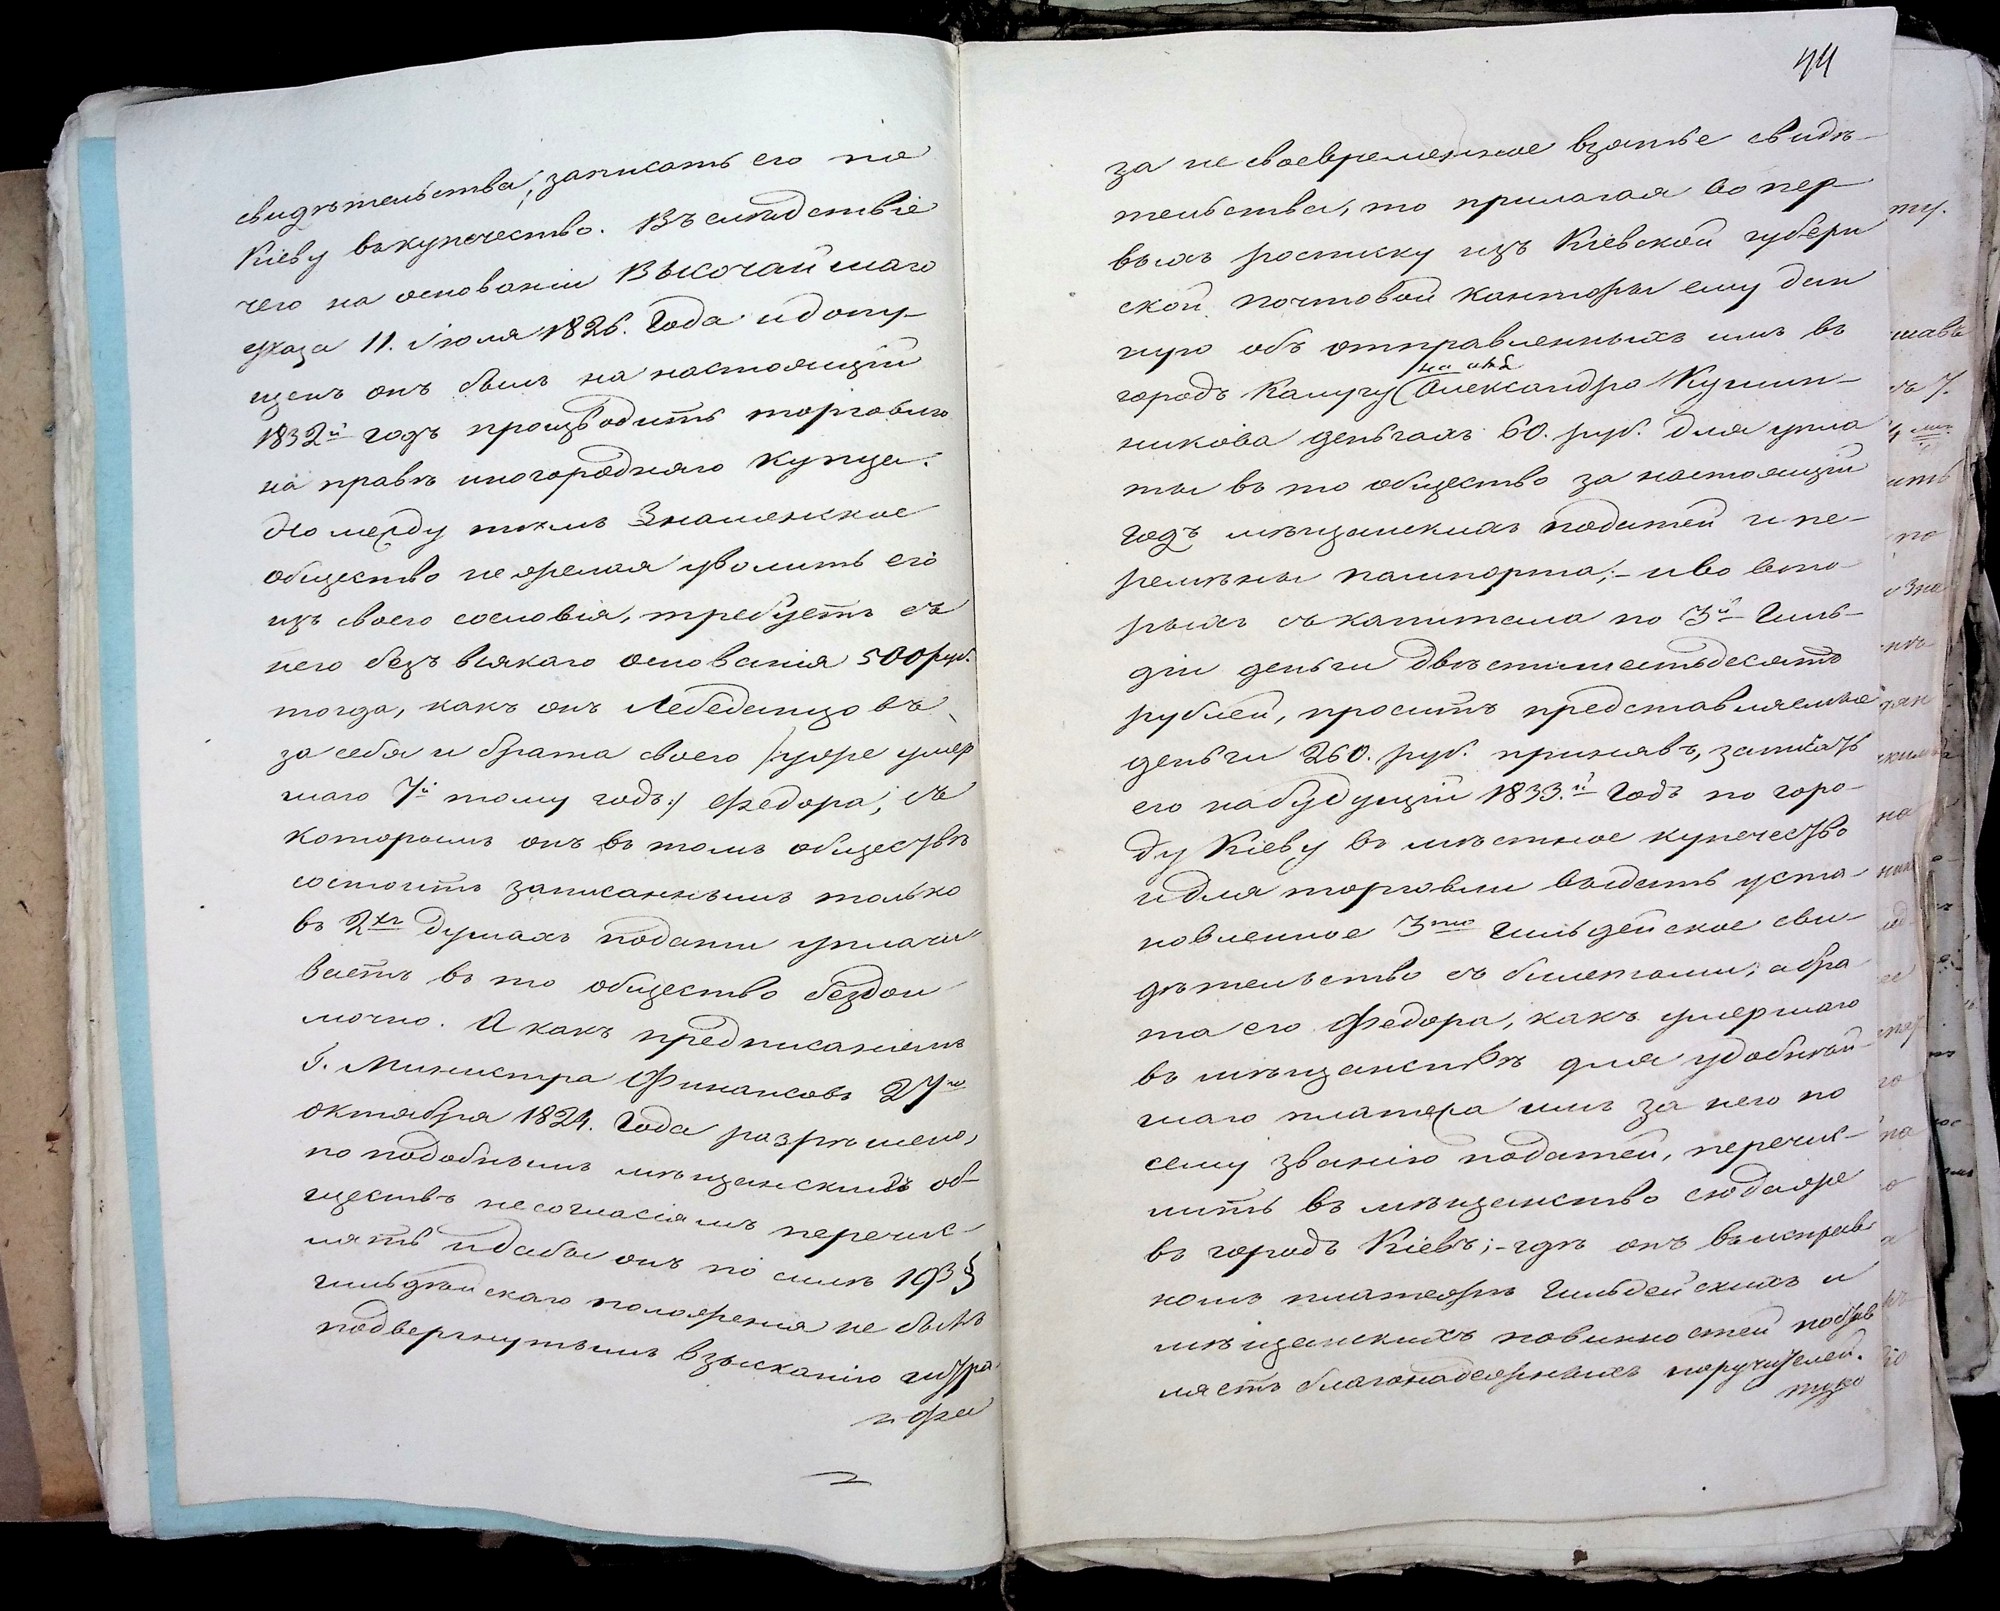 свидѣтельства, записать его по
Кіеву въ купечество. Въ слѣдствіе
чего на основаніи Высочайшаго
указа 11. Іюля 1826. Года и допу-
щенъ онъ былъ на настоящій
1832й годъ производить торговлю
на правѣ иногороднаго купца.
Но между тѣмъ Знаменское
общество не желая уволить его
изъ своего сословія, требуетъ съ
него безъ всякаго основанія 500 руб.
тогда, какъ онъ Лебединцовъ
за себя и брата своего /: уже умер
шаго 7й тому годъ :/ Федора, съ
которымъ онъ въ томъ обществѣ
состоитъ записаннымъ только
въ 2хъ душахъ подати уплачи
ваетъ въ то общество бездои
мочно. А какъ предписаніемъ
Г. Министра Финансовъ 27го
октября 1824. Года разрѣшено,
по подобнымъ мѣщанскихъ об-
ществъ несогласіямъ перечис-
лять и дабы онъ по силѣ 193 §
гильдейскаго положенія не былъ
подвергнутымъ взысканію штра
фа
44
за не своевременное взятье свидѣ-
тельства, то прилагая во пер-
выхъ росписку изъ Кіевской губерн
ской почтовой канторы ему дан
ную объ отправленныхъ имъ въ
городъ Калугу Александра Кушин-
никова деньгахъ 60. руб. для упла
ты въ то общество за настоящій
годъ мѣщанскихъ податей и пе-
ремѣны пашпорта; - и во вто-
рыхъ съ капитала по 3й Гиль-
діи деньги двѣсти шестьдесятъ
рублей, проситъ представляемые
деньги 260. руб. принявъ, записать
его на будущій 1833.й Годъ по горо-
ду Кіеву въ мѣстное купечество
и для торговли выдать уста-
новленное 3ю Гильдейское сви-
дѣтельство съ билетами; а бра
та его Федора, какъ умершаго
въ мѣщанствѣ для удобнѣй-
шаго платежа имъ за него по
сему званію податей, перечис-
лить въ мѣщанство сюда же
въ городъ Кіевъ; - гдѣ онъ въ исправ
номъ платежѣ Гильдейскихъ и
мѣщанскихъ повинностей
благонадежныхъ поручителей.